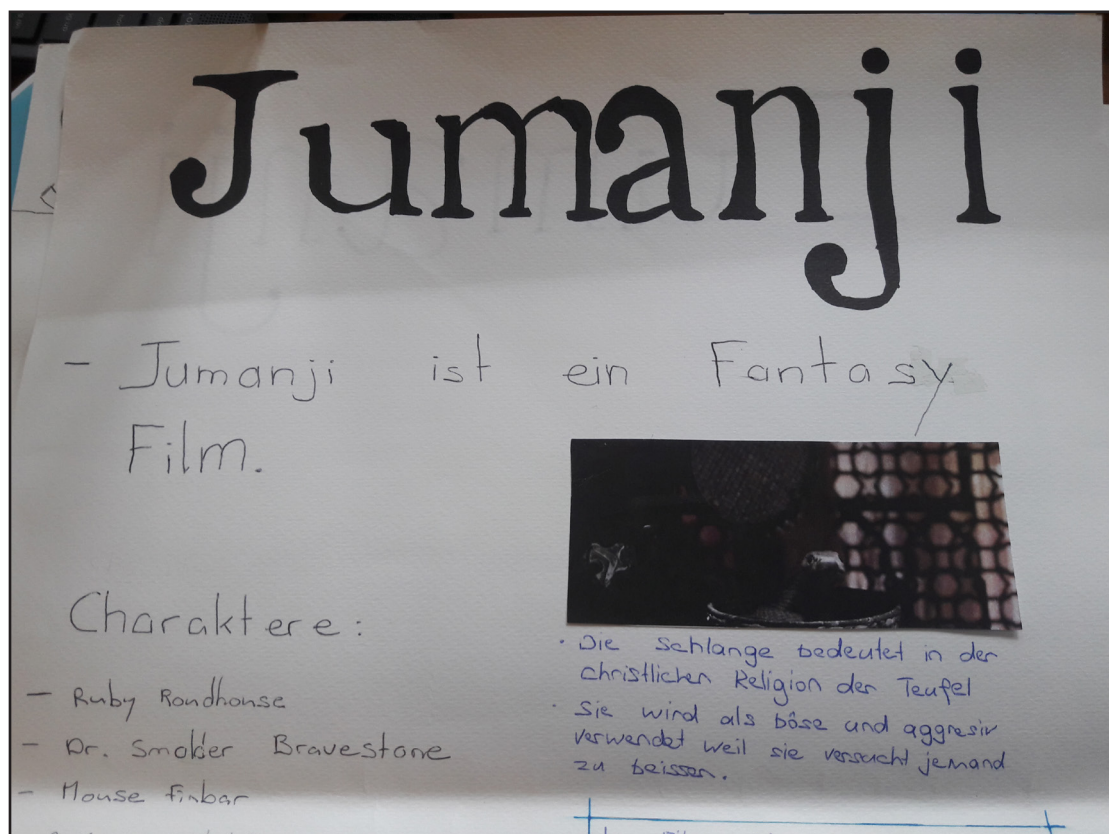 Jumanji
- Jumanji ist ein Fantasy
Film.
Charaktere:
- Ruby Rondhouse
- Dr. Smolder Bravestone
- Mouse finbar
· Die Schlange bedeutet in der
christlichen Religion der Teufel
· Sie wird als böse und aggresiv
verwendet weil sie versucht jemand
zu beissen.